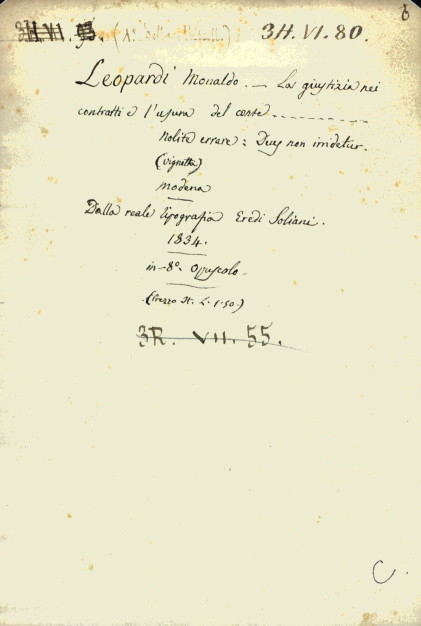 3H. VI. 80.
Leopardi Monaldo. — La giustizia nei
contratti e l'usura del conte
Nolite errare: Deus non irridetur.
(vignetta)
Modena
Dalla reale tipografia Eredi Soliani.
1834.
in-8°. Opuscolo.
(Prezzo It. L. 1.50.)
3R. VII. 55.
C.